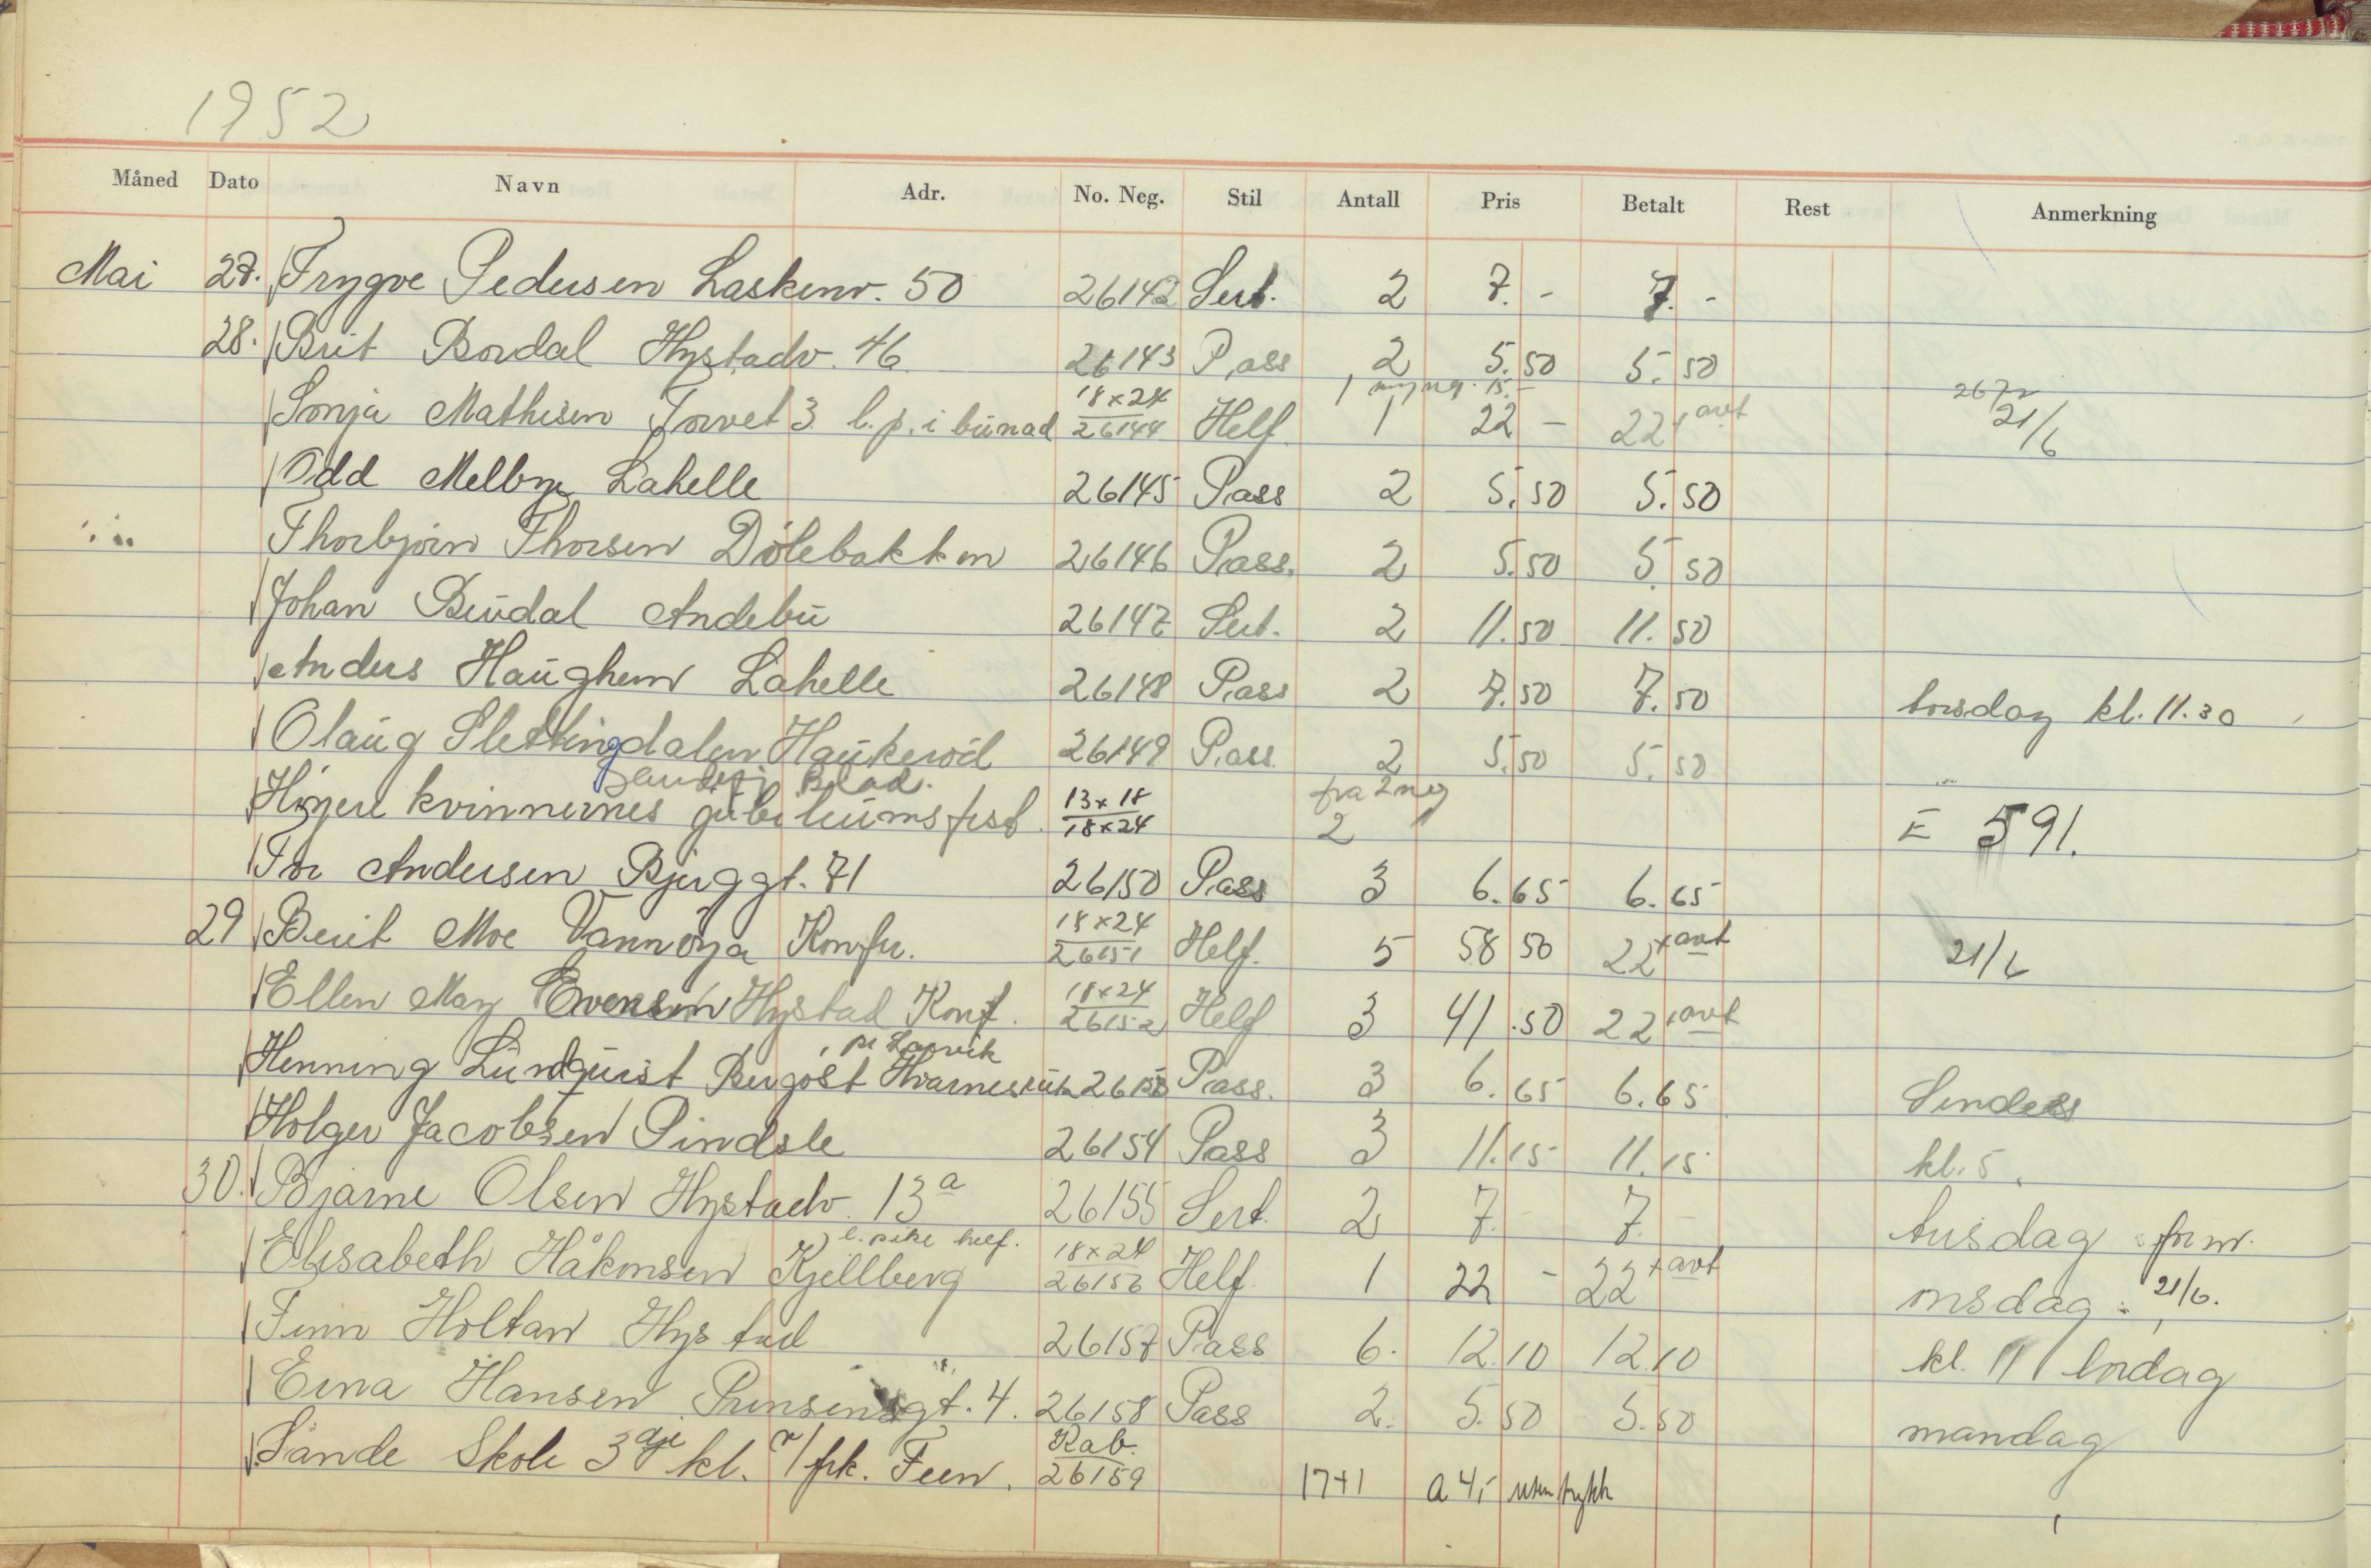 1952
Måned Dato Navn Adr. No. Neg. Stil Antall Pris Betalt Rest Anmerkning
Mai 27. Trygve Pedersen Laskenv. 50 26142 Sert. 2 7.- 7.-
28. Brit Bordal Hystadv. 46 26143 Pass 2 5.50 5.50
1 ny neg. 15.-
Sonja Mathisen Torvet 3 l.p. i bunad 18x24 26144 Helf. 1 22 - 22 + avt 21/6
Odd Melbye Lahelle 26145 Pass 2 5.50 5.50
Thorbjörn Thorsen Dölebakken 26146 Pass. 2 5.50 5.50
Johan Budal Andebu 26147 Sert. 2 11.50 11.50
Anders Haughem Lahelle 26148 Pass 2 7.50 7.50 torsdag kl. 11.30
Olaug Slettingdalen Haukeröd 26149 Pass 2 5.50 5.50
Sandefj. Blad. fra 2 neg
Höyere kvinnernes jubileumsfest. 13x18 18x24 2 E 591.
Tor Andersen Bjerggt. 71 26150 Pass 3 6.65 6.65
29 Berit Moe Vannöya Konfir. 18x24 26151 Helf. 5 58 50 22 + avt 21/6
Ellen May Evensen Hystad Konf. 18x24 26152 Helf 3 41.50 22 + avt
pr Larvik
Henning Lundquist Bergöst 26153 Pass. 3 6.65 6.65 Sendes
Holger Jacobsen Pindsle 26154 Pass 3 11.15 11.15 kl. 5.
30. Bjarne Olsen Hystadv. 13a 26155 Sert. 2 7.- 7.- tirsdag form.
l. pike helf.
Elisabeth Håkonsen Kjellberg 18x24 26156 Helf. 1 22 - 22 + avt onsdag 21/6.
Finn Holtan Hystad 26157 Pass 6. 12.10 12.10 kl. 11 lördag
Erna Hansen Prinsensgt. 4. 26158 Pass 2. 5.50 5.50 mandag
Sande Skole 3dje kl. v/frk. Feen. Kab. 26159 17+1 a 4,- uten trykk